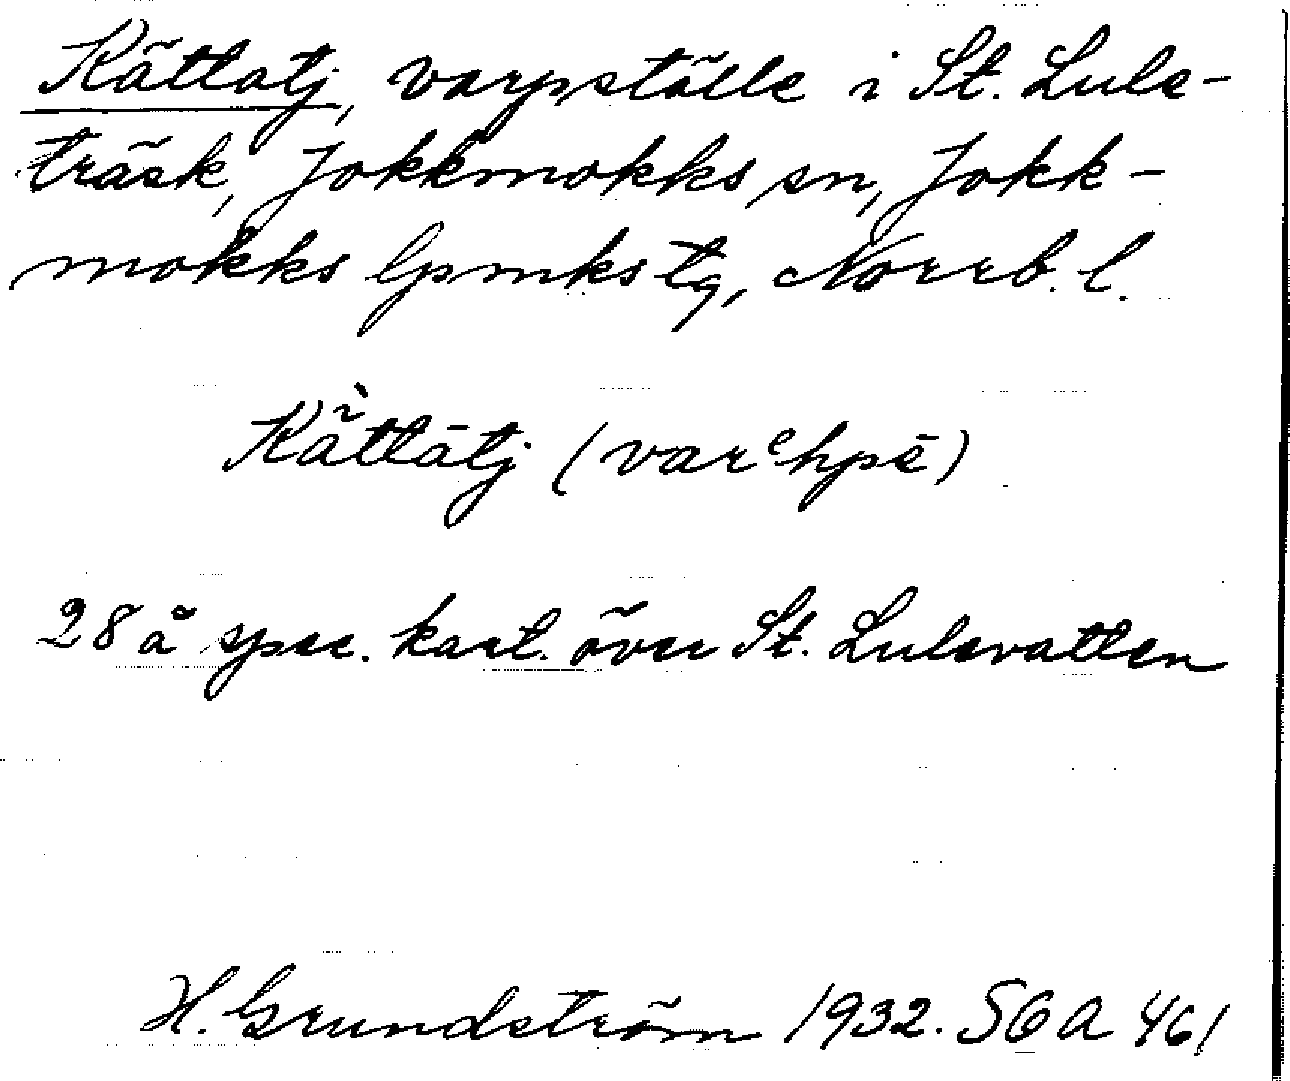 Kättatj, varpställe i St. Lule-
träsk, Jokkmokks sn, Jokk-
mokks lpmks tg, Norrb. l.
Kä̀ttātj (varᵉhpē)
28 å spec. kart. över St. Lulevatten
H. Grundström 1932. SOA 461